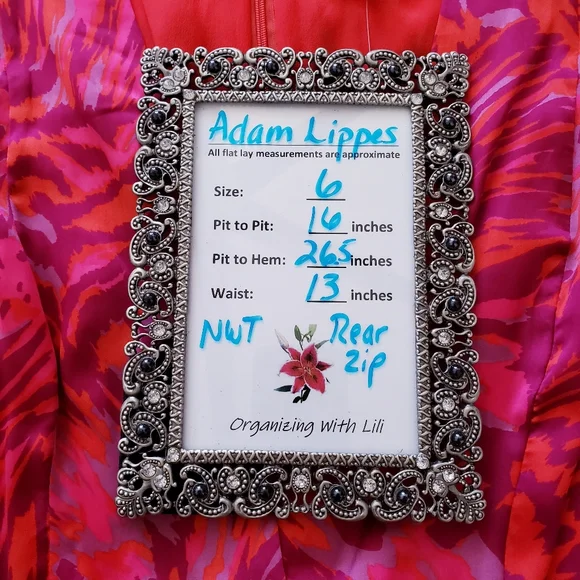 Adam Lippes
All flat lay measurements are approximate
Size: 6
Pit to Pit: 16 inches
Pit to Hem: 26.5 inches
Waist: 13 inches
NWT Rear
Zip
Organizing With Lili